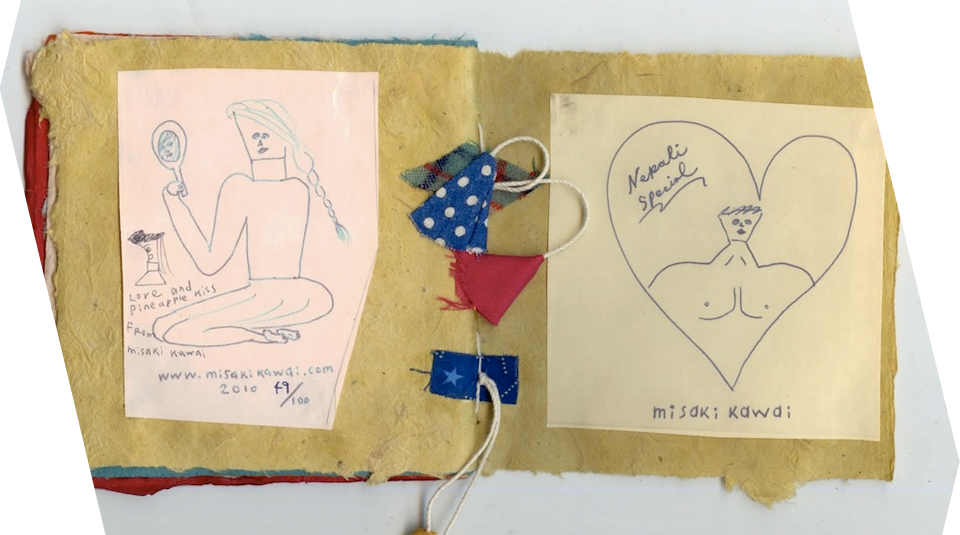 Love and
pineapple kiss
FROM
misaki kawai
www.misakikawai.com
2010 49/100
Nepali
Special
misaki kawai